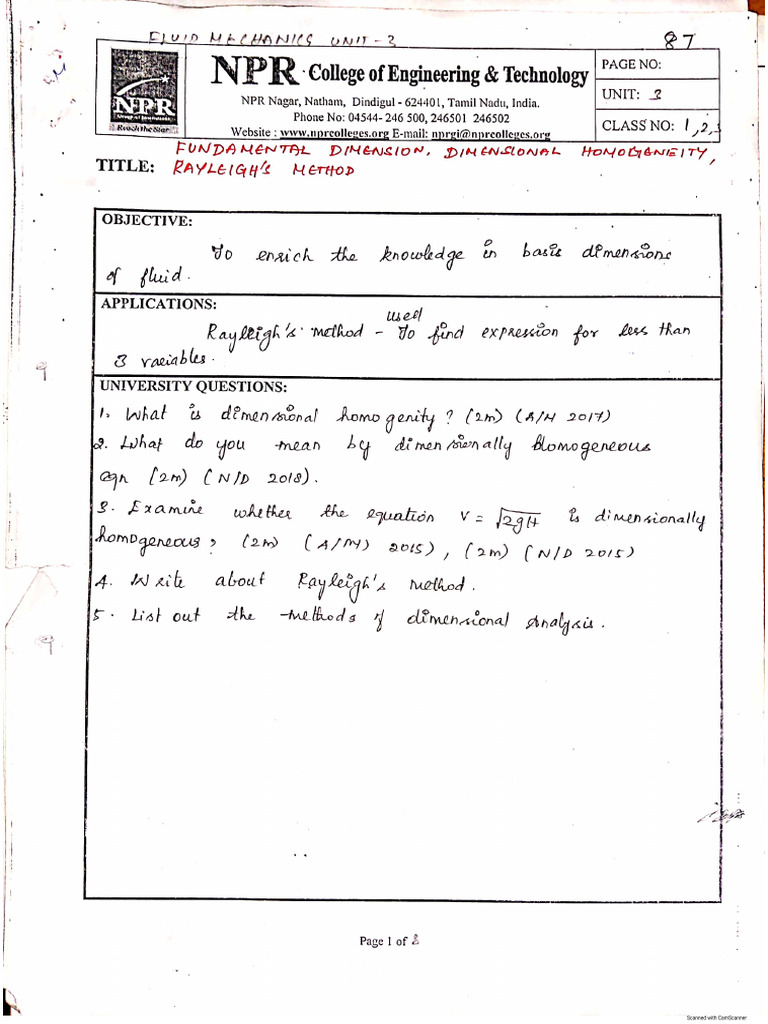 FLUID MECHANICS UNIT - 3
87
NPR College of Engineering & Technology
NPR Nagar, Natham, Dindigul - 624401, Tamil Nadu, India.
Phone No: 04544- 246 500, 246501 246502
Website : www.nprcolleges.org E-mail: nprgi@nprcolleges.org
NPR
Reach the Star
PAGE NO:
UNIT: 3
CLASS NO: 1,2,3
FUNDAMENTAL DIMENSION, DIMENSIONAL HOMOGENIETY,
TITLE: RAYLEIGH'S METHOD
OBJECTIVE:
To enrich the knowledge in basis dimensions
of fluid.
APPLICATIONS:
used
Rayleigh's method - To find expression for less than
3 variables.
UNIVERSITY QUESTIONS:
1. What is dimensional homogenity? (2m) (A/M 2017)
2. What do you mean by dimensionally Homogeneous
eqn (2m) (N/D 2018).
3. Examine whether the equation V = √2gH is dimensionally
homogeneous? (2m) (A/M) 2015), (2m) (N/D 2015)
4. Write about Rayleigh's method.
5. List out the methods of dimensional Analysis.
Page 1 of 8
Scanned with CamScanner